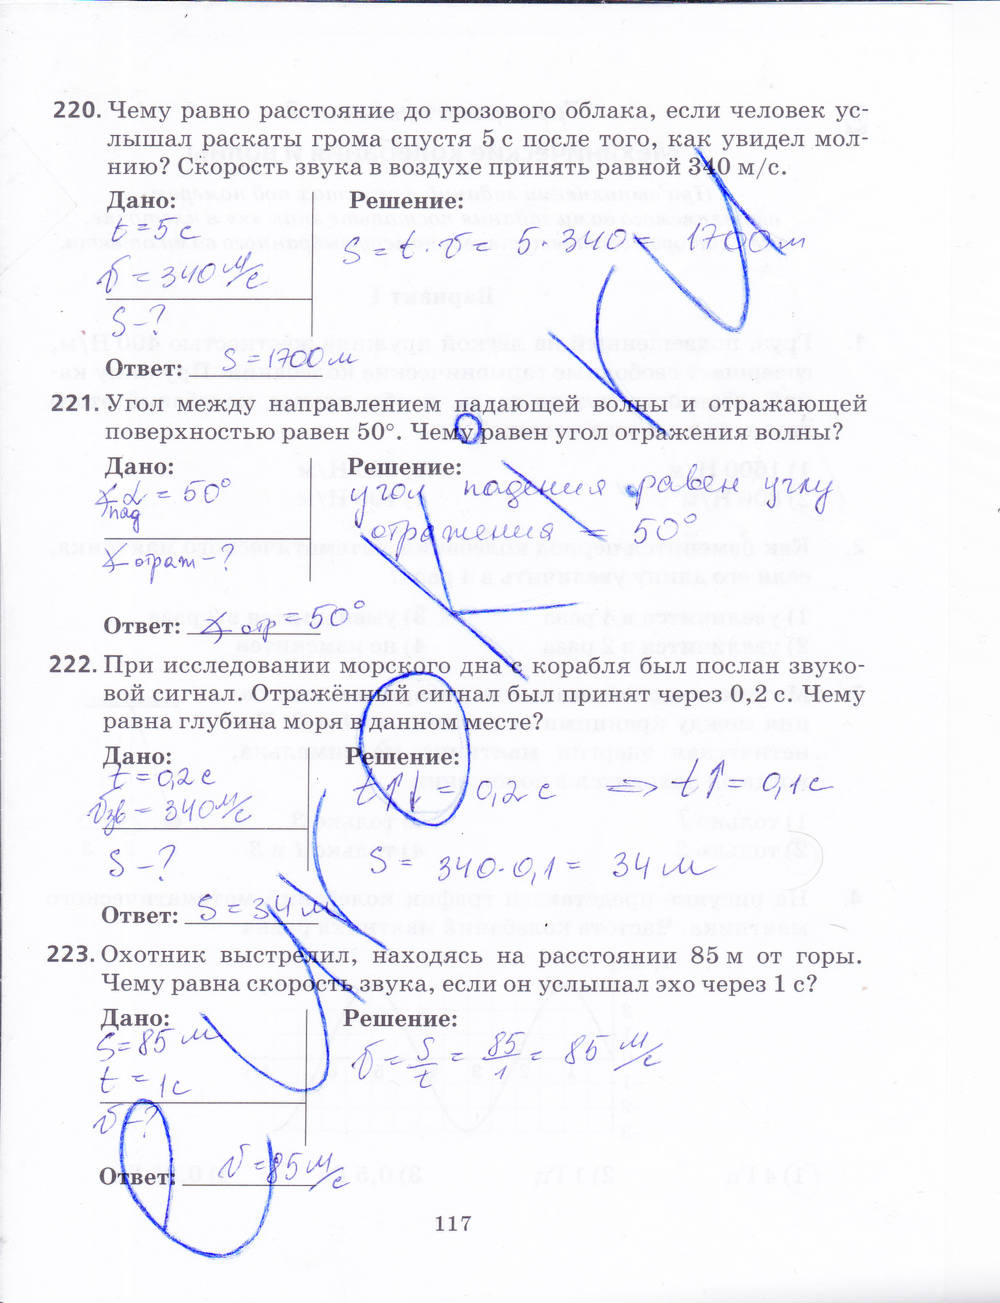 220. Чему равно расстояние до грозового облака, если человек ус-
лышал раскаты грома спустя 5 с после того, как увидел мол-
нию? Скорость звука в воздухе принять равной 340 м/с.
Дано: Решение:
t = 5 с
S = t · v = 5 · 340 = 1700 м
v = 340 м/с
S - ?
Ответ: S = 1700 м
221. Угол между направлением падающей волны и отражающей
поверхностью равен 50°. Чему равен угол отражения волны?
Дано: Решение:
∡α пад = 50°
угол падения равен углу
отражения = 50°
∡ отраж - ?
Ответ: ∡ отр = 50°
222. При исследовании морского дна с корабля был послан звуко-
вой сигнал. Отражённый сигнал был принят через 0,2 с. Чему
равна глубина моря в данном месте?
Дано: Решение:
t = 0,2 с
t↑↓ = 0,2 с ⇒ t↑ = 0,1 с
vзв = 340 м/с
S - ?
S = 340 · 0,1 = 34 м
Ответ: S = 34 м
223. Охотник выстрелил, находясь на расстоянии 85 м от горы.
Чему равна скорость звука, если он услышал эхо через 1 с?
Дано: Решение:
S = 85 м
v = S/t = 85/1 = 85 м/с
t = 1 с
v - ?
Ответ: v = 85 м/с
117